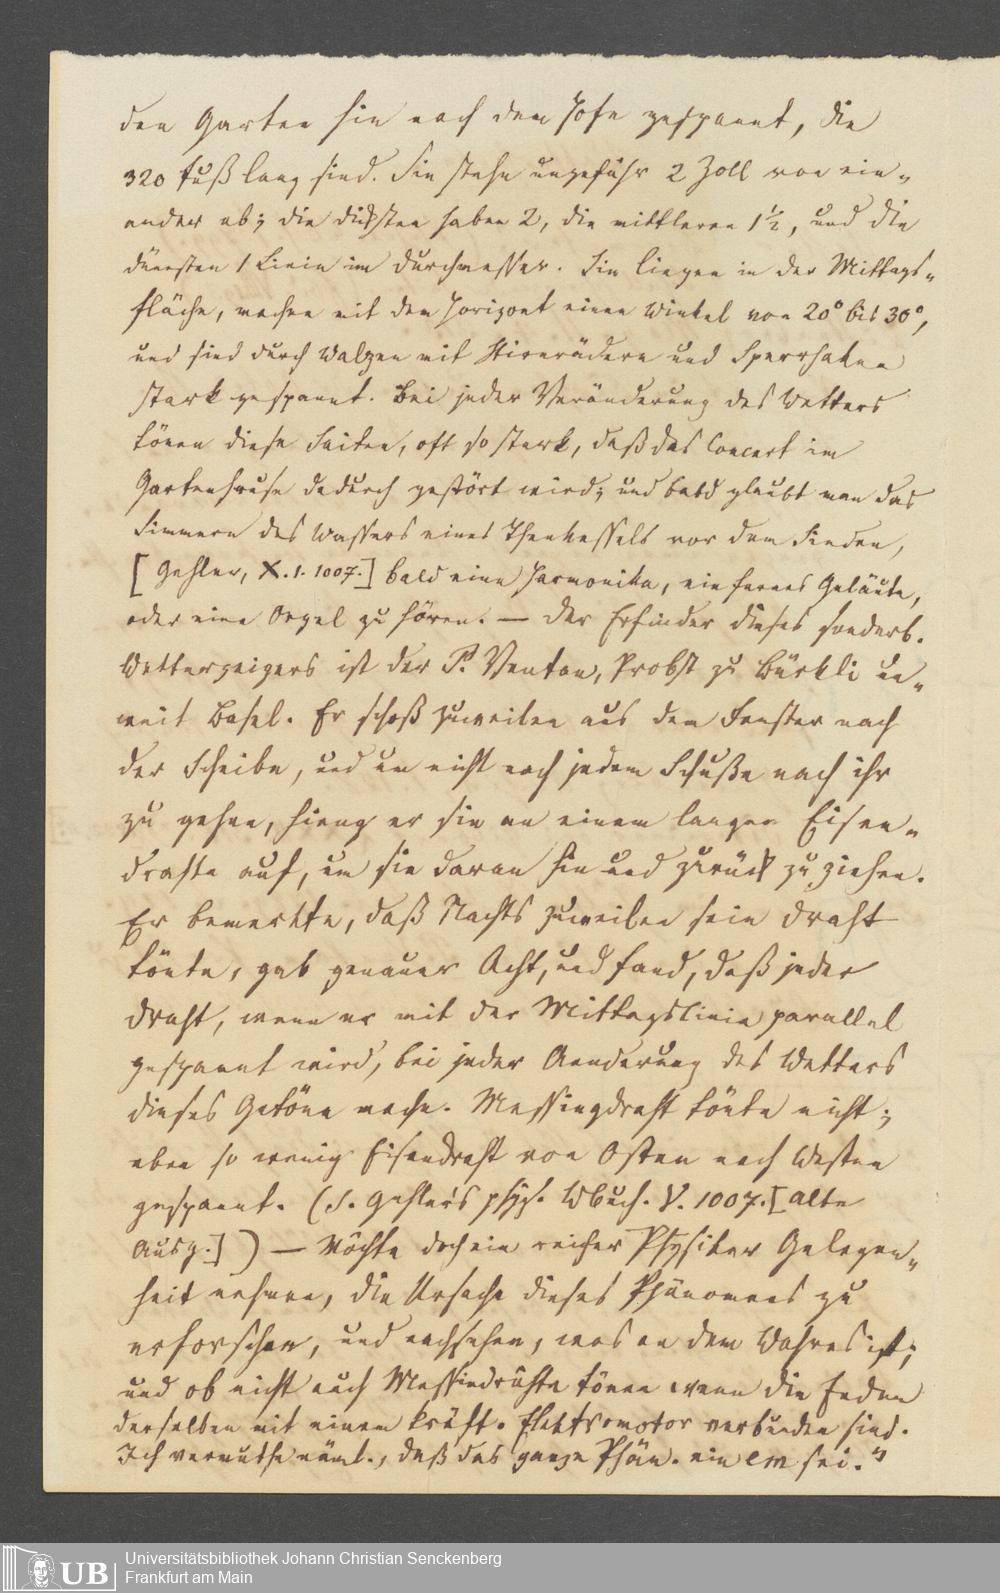 den Garten hin nach dem Hofe gespannt, die
320 Fuß lang sind. Sie stehn ungefähr 2 Zoll von ein-
ander ab; die dicksten haben 2, die mittleren 1½, und die
dünnsten 1 Linie im Durchmesser. Sie liegen in der Mittags-
fläche, machen mit dem Horizont einen Winkel von 20° bis 30°,
und sind durch Walzen mit Stirnrädern und Sperrhaken
stark gespannt. Bei jeder Veränderung des Wetters
tönen diese Saiten, oft so stark, daß das Concert im
Gartenhause dadurch gestört wird; und bald glaubt man das
Simmern des Wassers eines Theekessels vor dem Sieden,
[Gehler, X.1.1007.] bald eine Harmonika, ein fernes Geläute,
oder eine Orgel zu hören. — Der Erfinder dieses sonderb.
Wetterzeigers ist der P. Ventan, Probst zu Bürkli un-
weit Basel. Er schoß zuweilen aus dem Fenster nach
der Scheibe, und um nicht nach jedem Schuße nach ihr
zu gehen, hieng er sie an einem langen Eisen-
drahte auf, um sie daran hin und zurück zu ziehen.
Er bemerkte, daß Nachts zuweilen sein Draht
tönte, gab genauer Acht, und fand, daß jeder
Draht, wenn er mit der Mittagslinie parallel
gespannt wird, bei jeder Aenderung des Wetters
dieses Getöne mache. Messingdraht tönte nicht;
eben so wenig Eisendraht von Osten nach Westen
gespannt. (S. Gehler's phys. Wbuch. V. 1007. [alte
Ausg.]) — Möchte doch ein reicher Physiker Gelegen-
heit nehmen, die Ursache dieses Phänomens zu
erforschen, und nachsehen, was an dem Wahres ist;
und ob nicht auch Messindrähte tönen wenn die Enden
derselben mit einem kräft. Elektromotor verbunden sind.
Ich vermuthe näml., daß das ganze Phän. ein em sei."
Universitätsbibliothek Johann Christian Senckenberg
Frankfurt am Main
UB